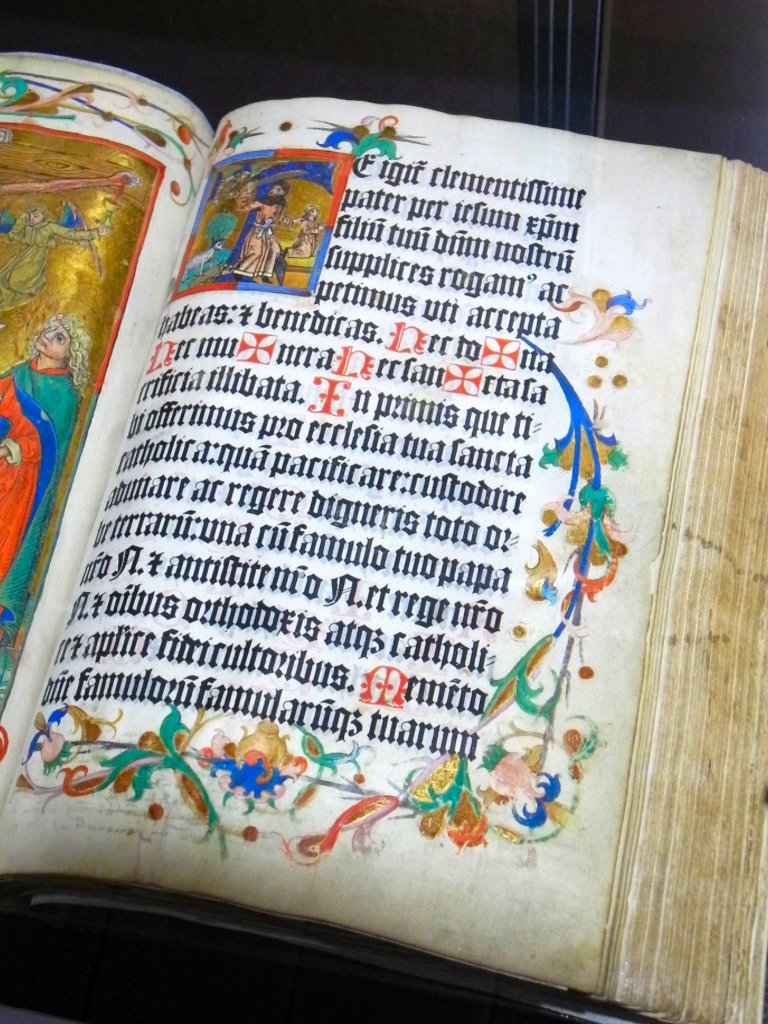 E igit̃ clementissime
pater per iesum xp̃m
filiũ tuũ dñm nostrũ
supplices rogamꝰ ac
petimus vti accepta
habeas: ⁊ benedicas. Hec do ✠ na
Hec mu ✠ nera Hec san ✠ cta sa
crificia illibata. In primis que ti-
bi offerimus pro ecclesia tua sancta
catholica: quã pacificare: custodire
adunare ac regere digneris toto or-
be terrarũ: vna cũ famulo tuo papa
nr̃o N. ⁊ antistite nr̃o N. et rege nr̃o
N. ⁊ oĩbus orthodoxis atqꝫ catholi-
ce ⁊ aplĩce fidei cultoribus. Memẽto
dñe famulorũ famularũqꝫ tuarum